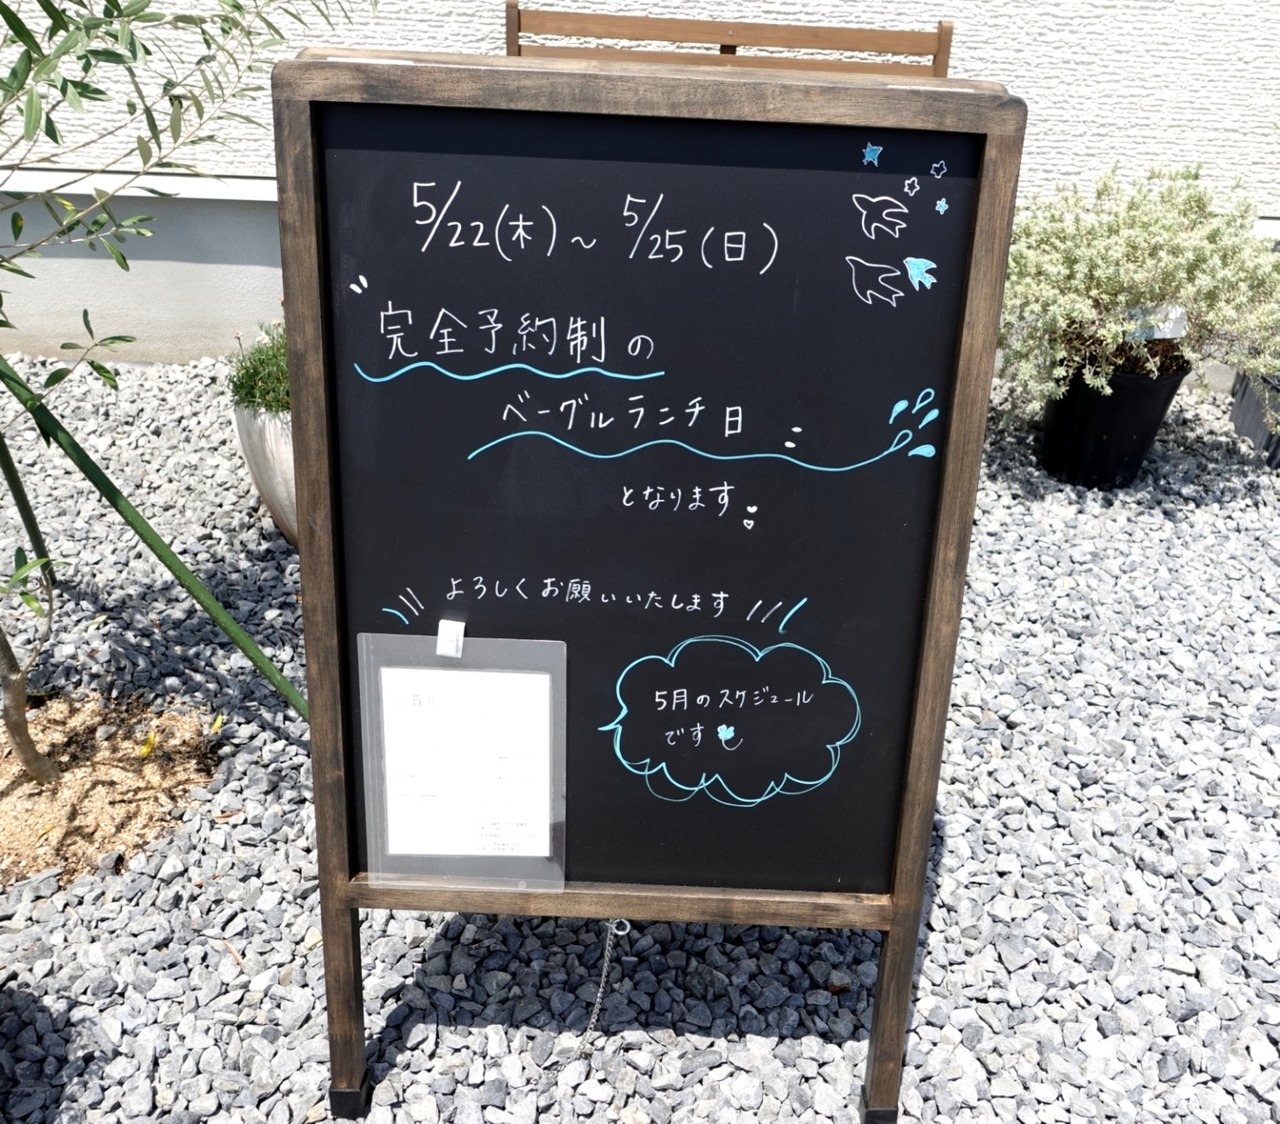 5/22(木)～ 5/25(日)
完全予約制の
ベーグルランチ日
となります
よろしくお願いいたします
5月のスケジュール
です
5月